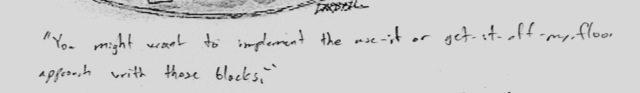 "You might want to implement the use-it or get-it-off-my-floor
approach with those blocks."